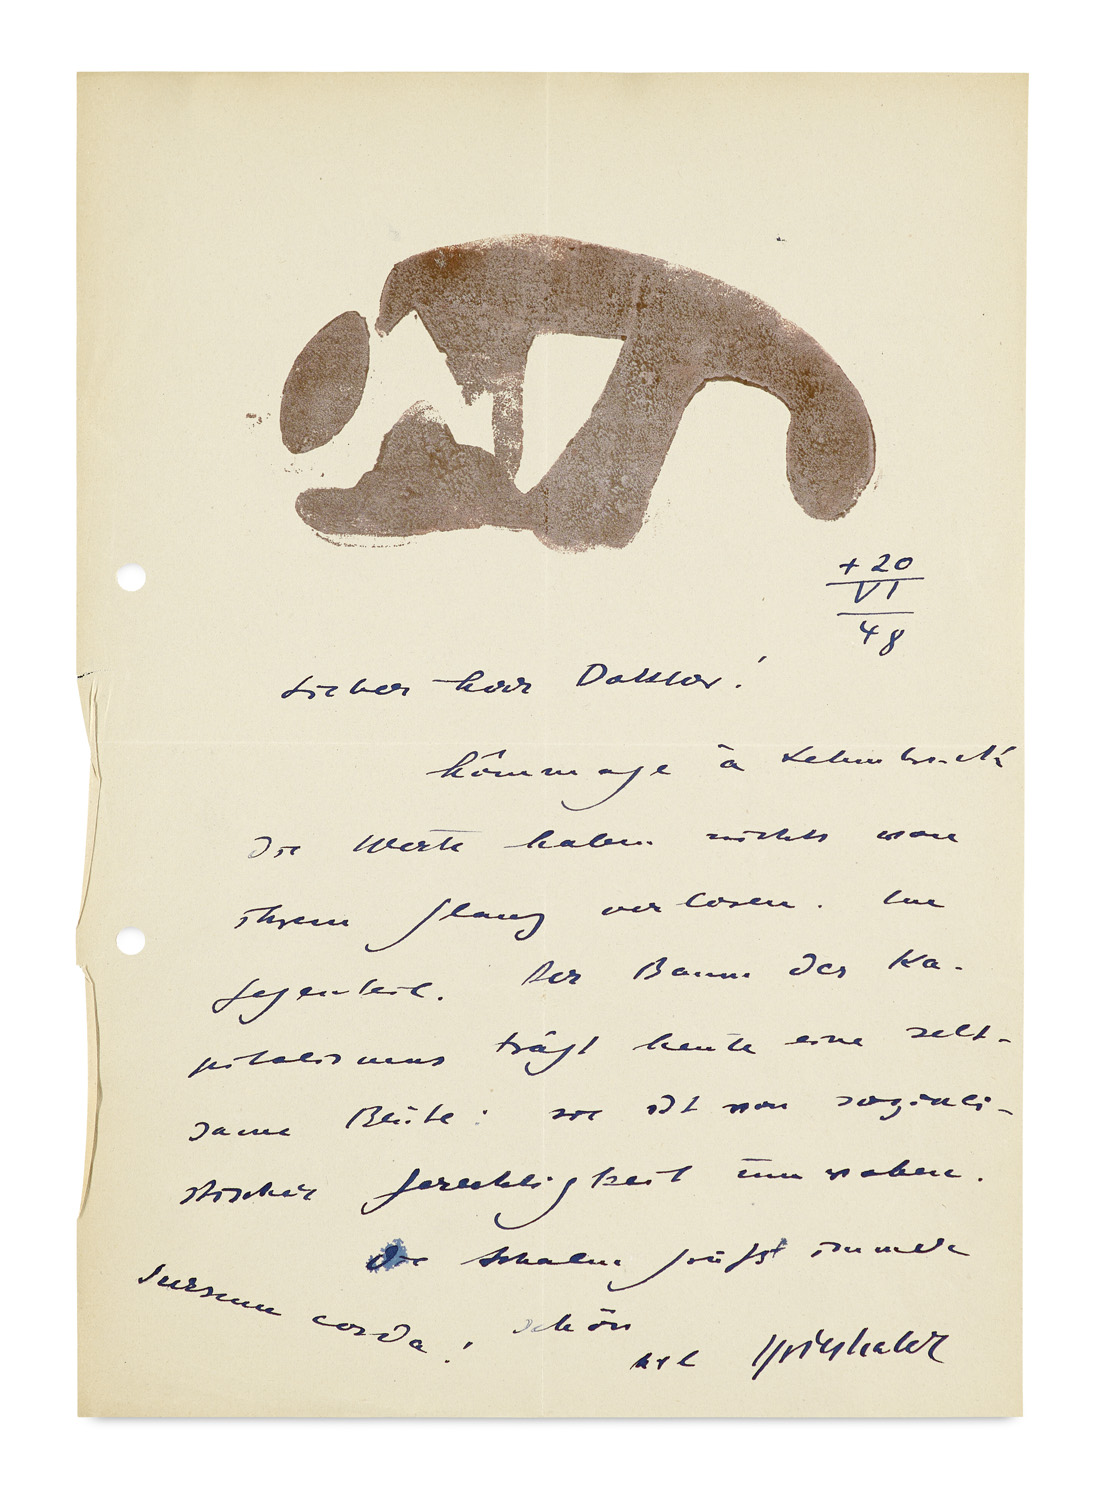 +20
VI
48
Lieber Herr Doktor!
hommage à Lehmbruck
die Werke haben nichts von
ihrem Glanz verloren. Im
Gegenteil. Der Baum des Ka-
pitalismus trägt heute eine selt-
same Blüte: sie ist von soziali-
stischer Gerechtigkeit umwoben.
die grüßt immer
schön
sursum corda!
hap Grieshaber